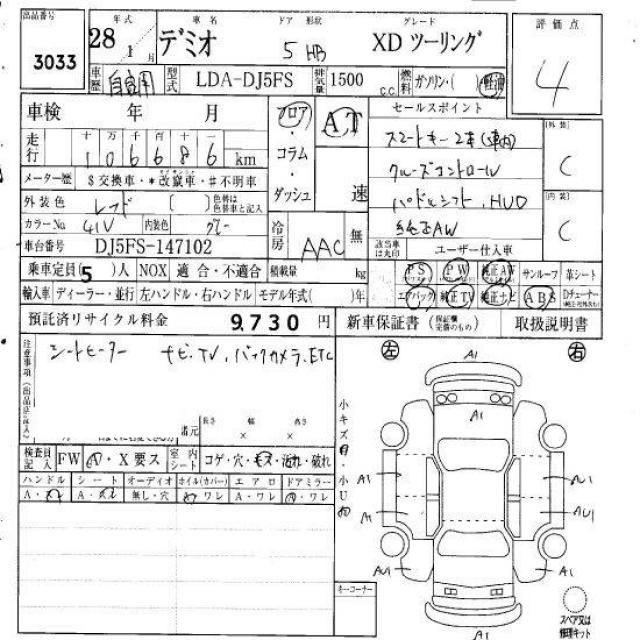 出品番号 3033
年式 28年 1月
車名 デミオ
ドア 形状 5 HB
グレード XD ツーリング
評価点 4
車歴 自家用
型式 LDA-DJ5FS
排気量 1500 c.c.
燃料 ガソリン・( 軽油
車検 年 月
フロア・コラム・ダッシュ
AT 速
セールスポイント
スマートキー2本(車内)
クルーズコントロール
パドルシフト、HUD
純正AW
外装 C
内装 C
走行 十 万 千 百 十 一
1 0 6 6 8 6 km
メーター歴 $交換車・*改竄車・#不明車
外装色 レッド ( ) 色替は色替車と記入
カラーNo 41V 内装色 グレー
冷房 AAC 無
車台番号 DJ5FS-147102
該当車は丸印 ユーザー仕入車
乗車定員(5)人 NOX 適合・不適合 積載量 kg
PS PW 純正AW サンルーフ 革シート
輸入車 ディーラー・並行 左ハンドル・右ハンドル モデル年式( )年
エアバック 純正TV 純正ナビ ABS Dチューナー
預託済リサイクル料金 9,730 円
新車保証書 (保証欄完備のもの) 取扱説明書
注意事項(出品店記入)
シートヒーター ナビ、TV、バックカメラ、ETC
左 A1 右
A1
小キズ 小U
諸元 長さ × 幅 × 高さ
検査員記入 FW A・X要ス 室内シート コゲ・穴・モス・汚れ・破れ
ハンドル シート オーディオ ホイル(カバー) エアロ ドアミラー
A・スレ A・スレ 無し・穴 ワレ A・ワレ A・ワレ
A1 AU1
A1 AU1
AU1 A1
キーコーナー
A1
スペア又は修理キット